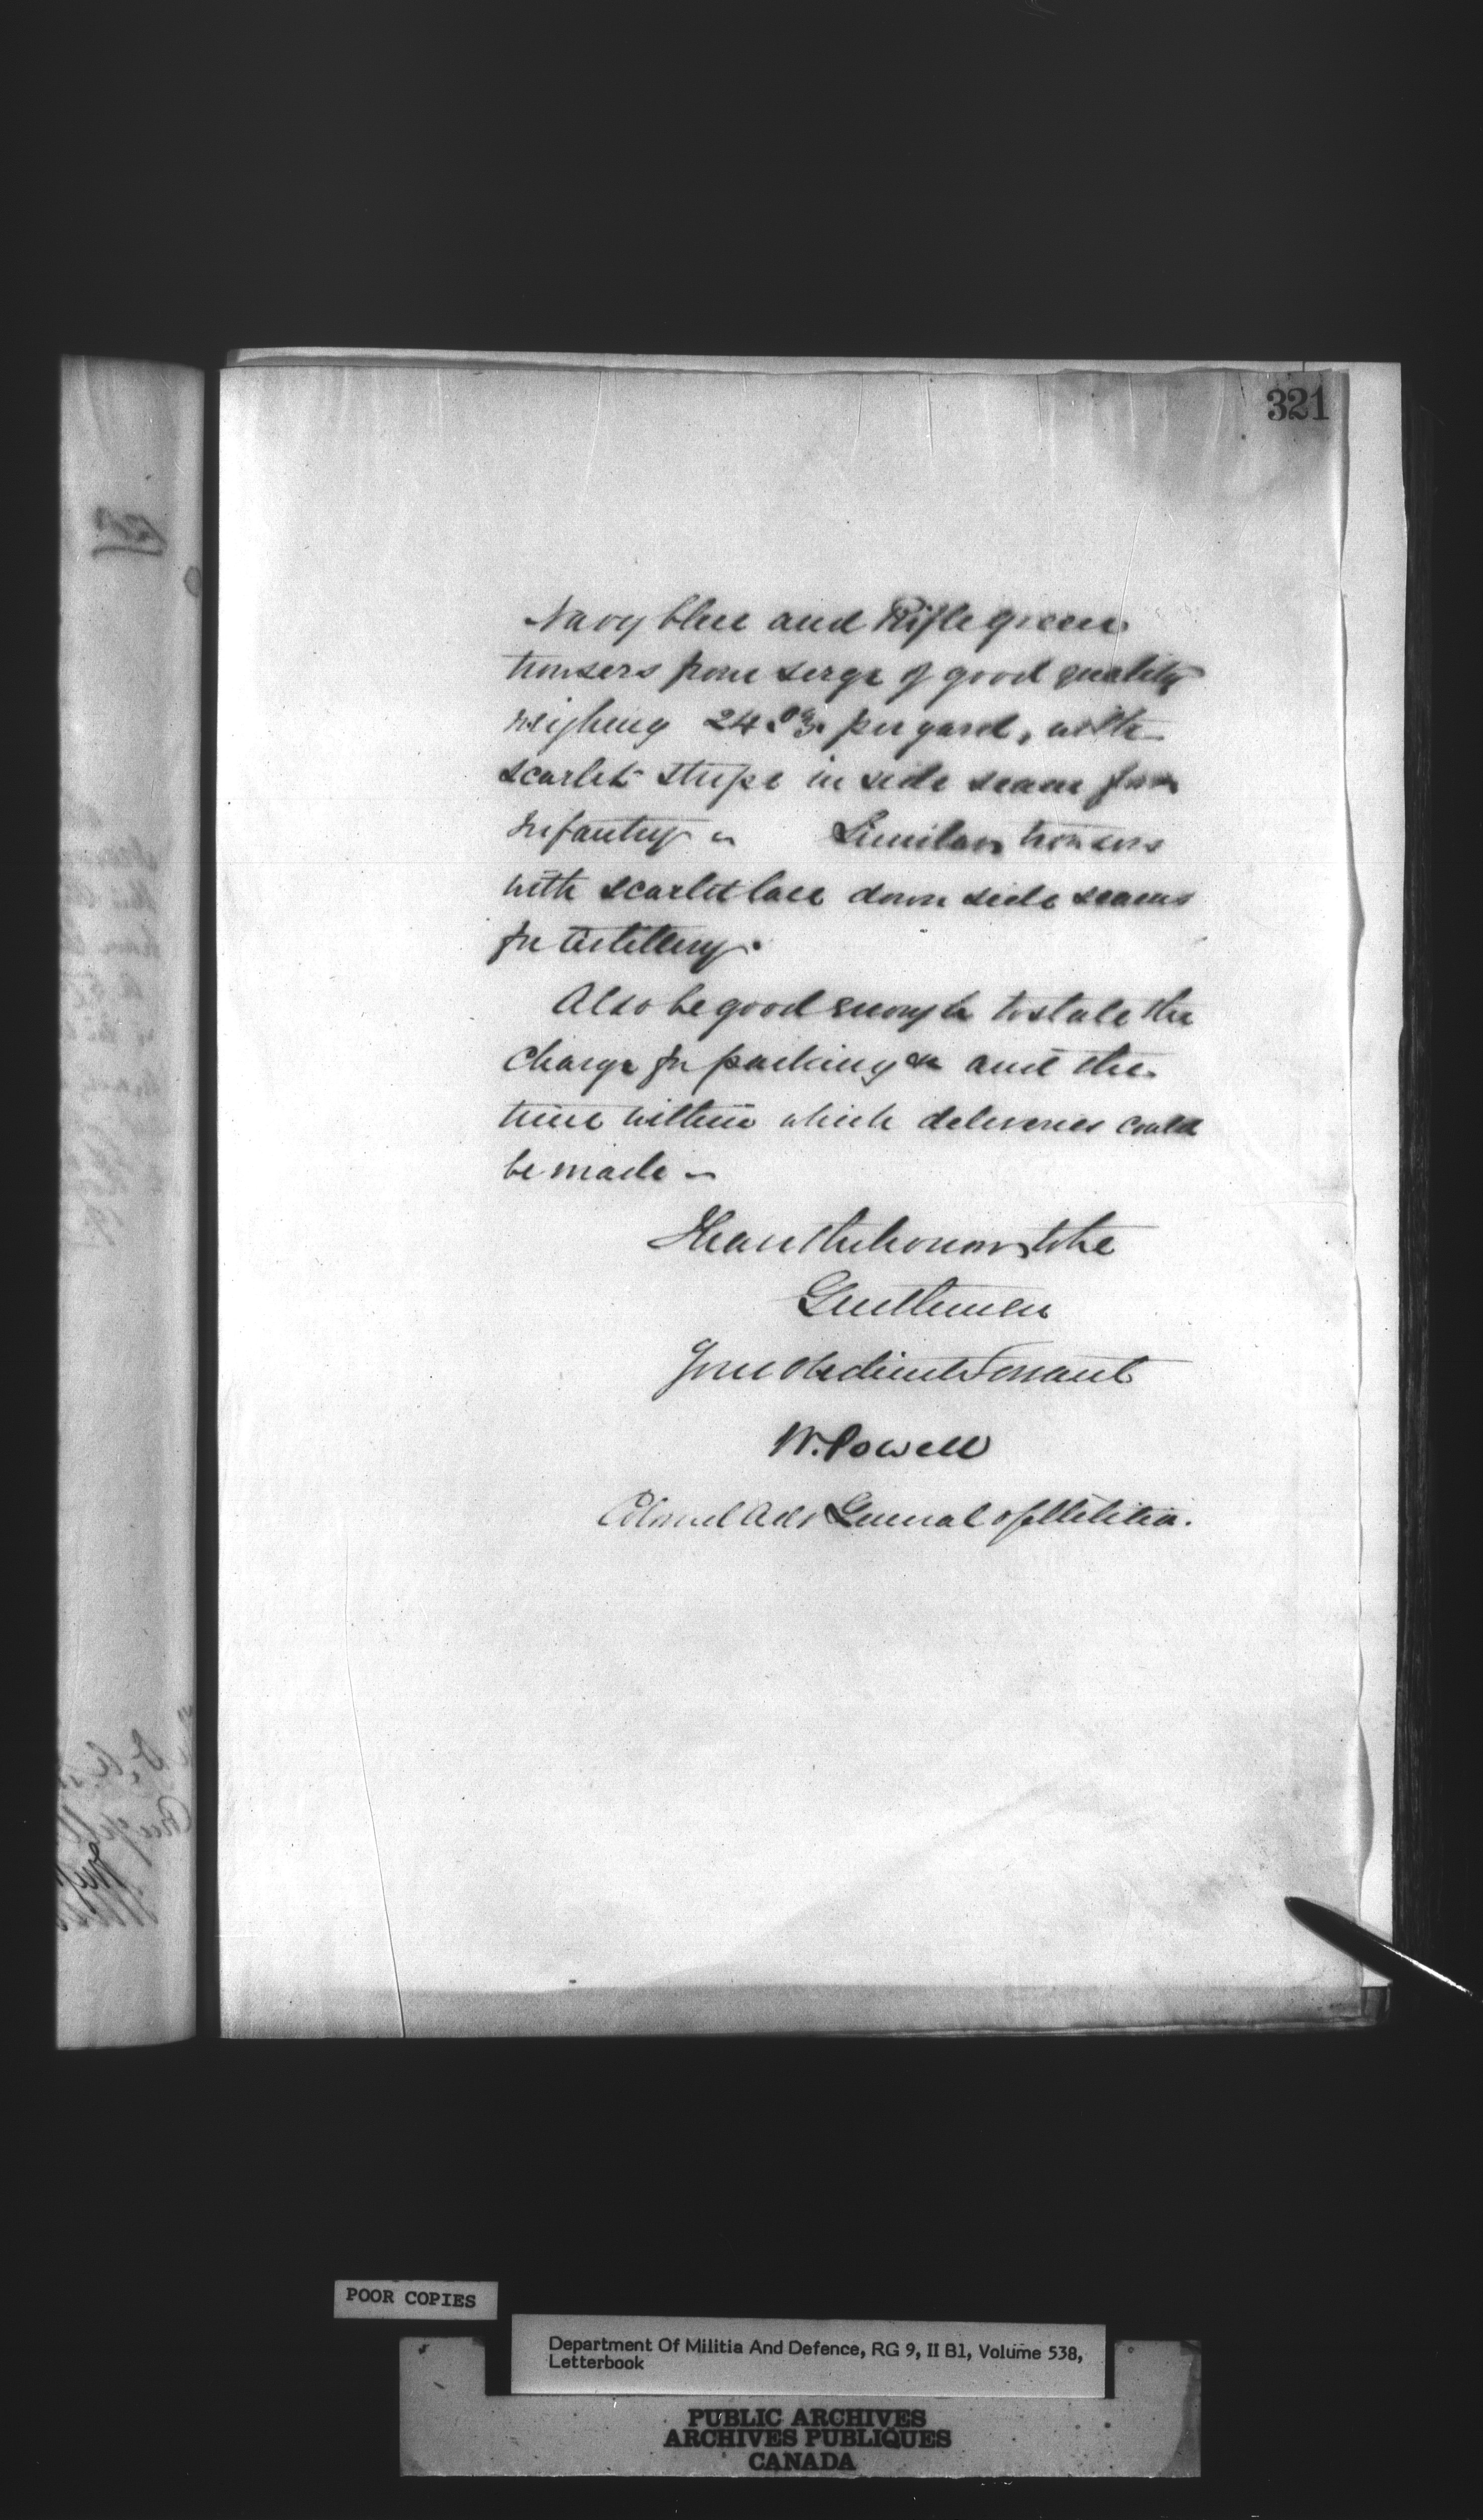 321
Navy blue and Rifle green
trousers from serge of good quality
weighing 24 oz. per yard, with
scarlet stripe in side seam for
Infantry – Similar trousers
with scarlet lace down side seams
for Artillery.
Also be good enough to state the
charge for packing and the
time within which deliveries could
be made –
I have the honour to be
Gentlemen
Your obedient Servant
W. Powell
Colonel Adjt General of Militia.
POOR COPIES
Department Of Militia And Defence, RG 9, II B1, Volume 538,
Letterbook
PUBLIC ARCHIVES
ARCHIVES PUBLIQUES
CANADA